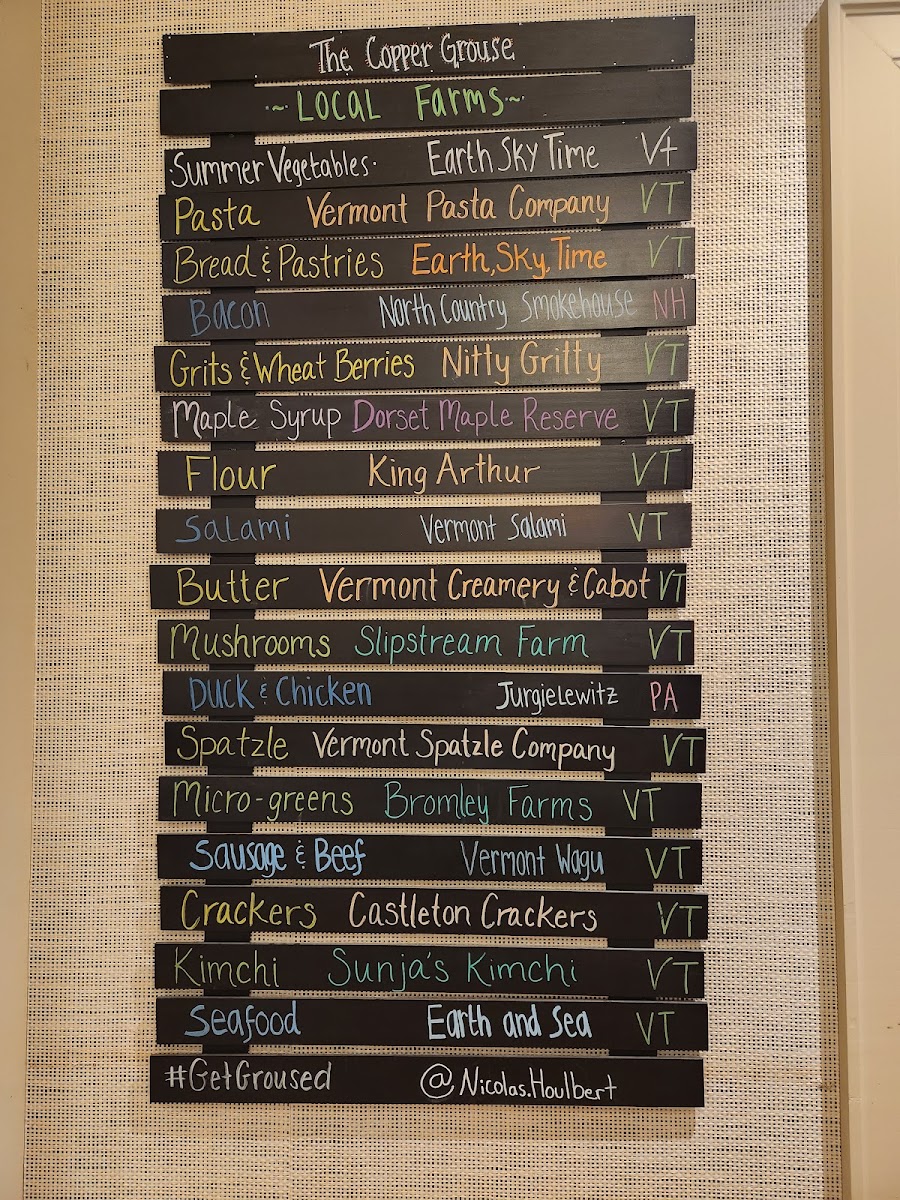 The Copper Grouse
~ Local Farms ~
·Summer Vegetables· Earth Sky Time Vt
Pasta Vermont Pasta Company VT
Bread & Pastries Earth, Sky, Time VT
Bacon North Country Smokehouse NH
Grits & Wheat Berries Nitty Gritty VT
Maple Syrup Dorset Maple Reserve VT
Flour King Arthur VT
Salami Vermont Salami VT
Butter Vermont Creamery & Cabot VT
Mushrooms Slipstream Farm VT
Duck & Chicken Jurgielewitz PA
Spatzle Vermont Spatzle Company VT
Micro-greens Bromley Farms VT
Sausage & Beef Vermont Wagu VT
Crackers Castleton Crackers VT
Kimchi Sunja's Kimchi VT
Seafood Earth and Sea VT
#GetGroused @Nicolas.Houlbert